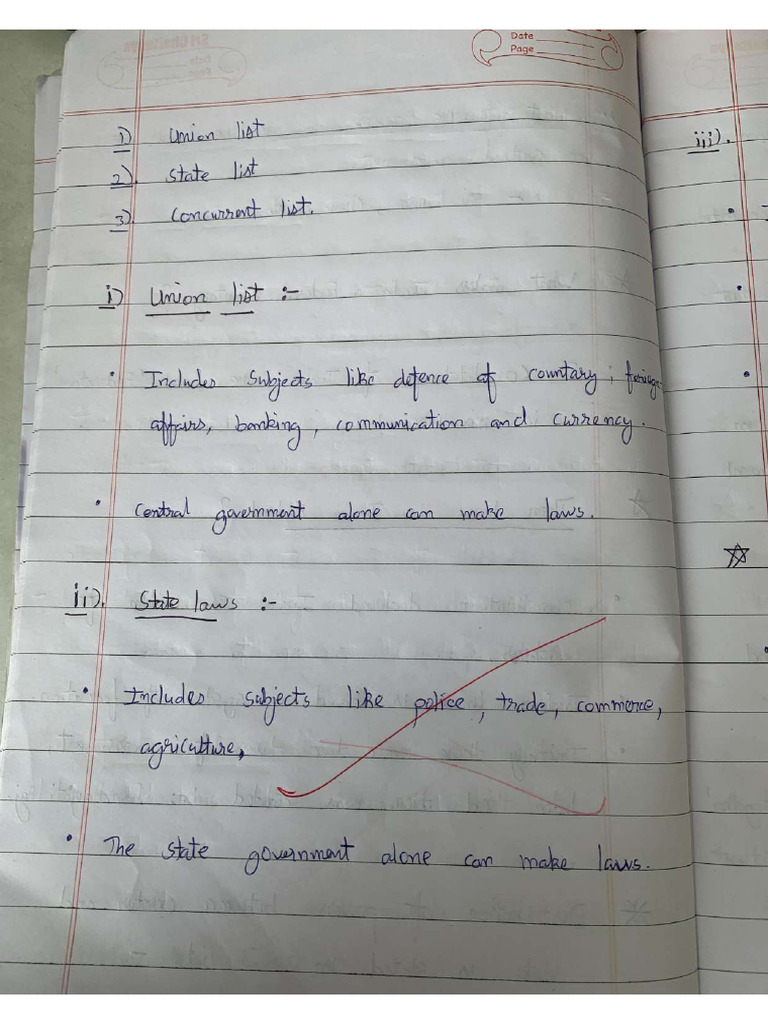 Date
Page
1) Union list
2). State list
3) Concurrent list.
i) Union list :-
iii).
• Includes subjects like defence of countary, foriege
affairs, banking, communication and currency.
• Central government alone can make laws.
ii). State laws :-
• Includes subjects like police, trade, commerce,
agriculture,
• The state government alone can make laws.